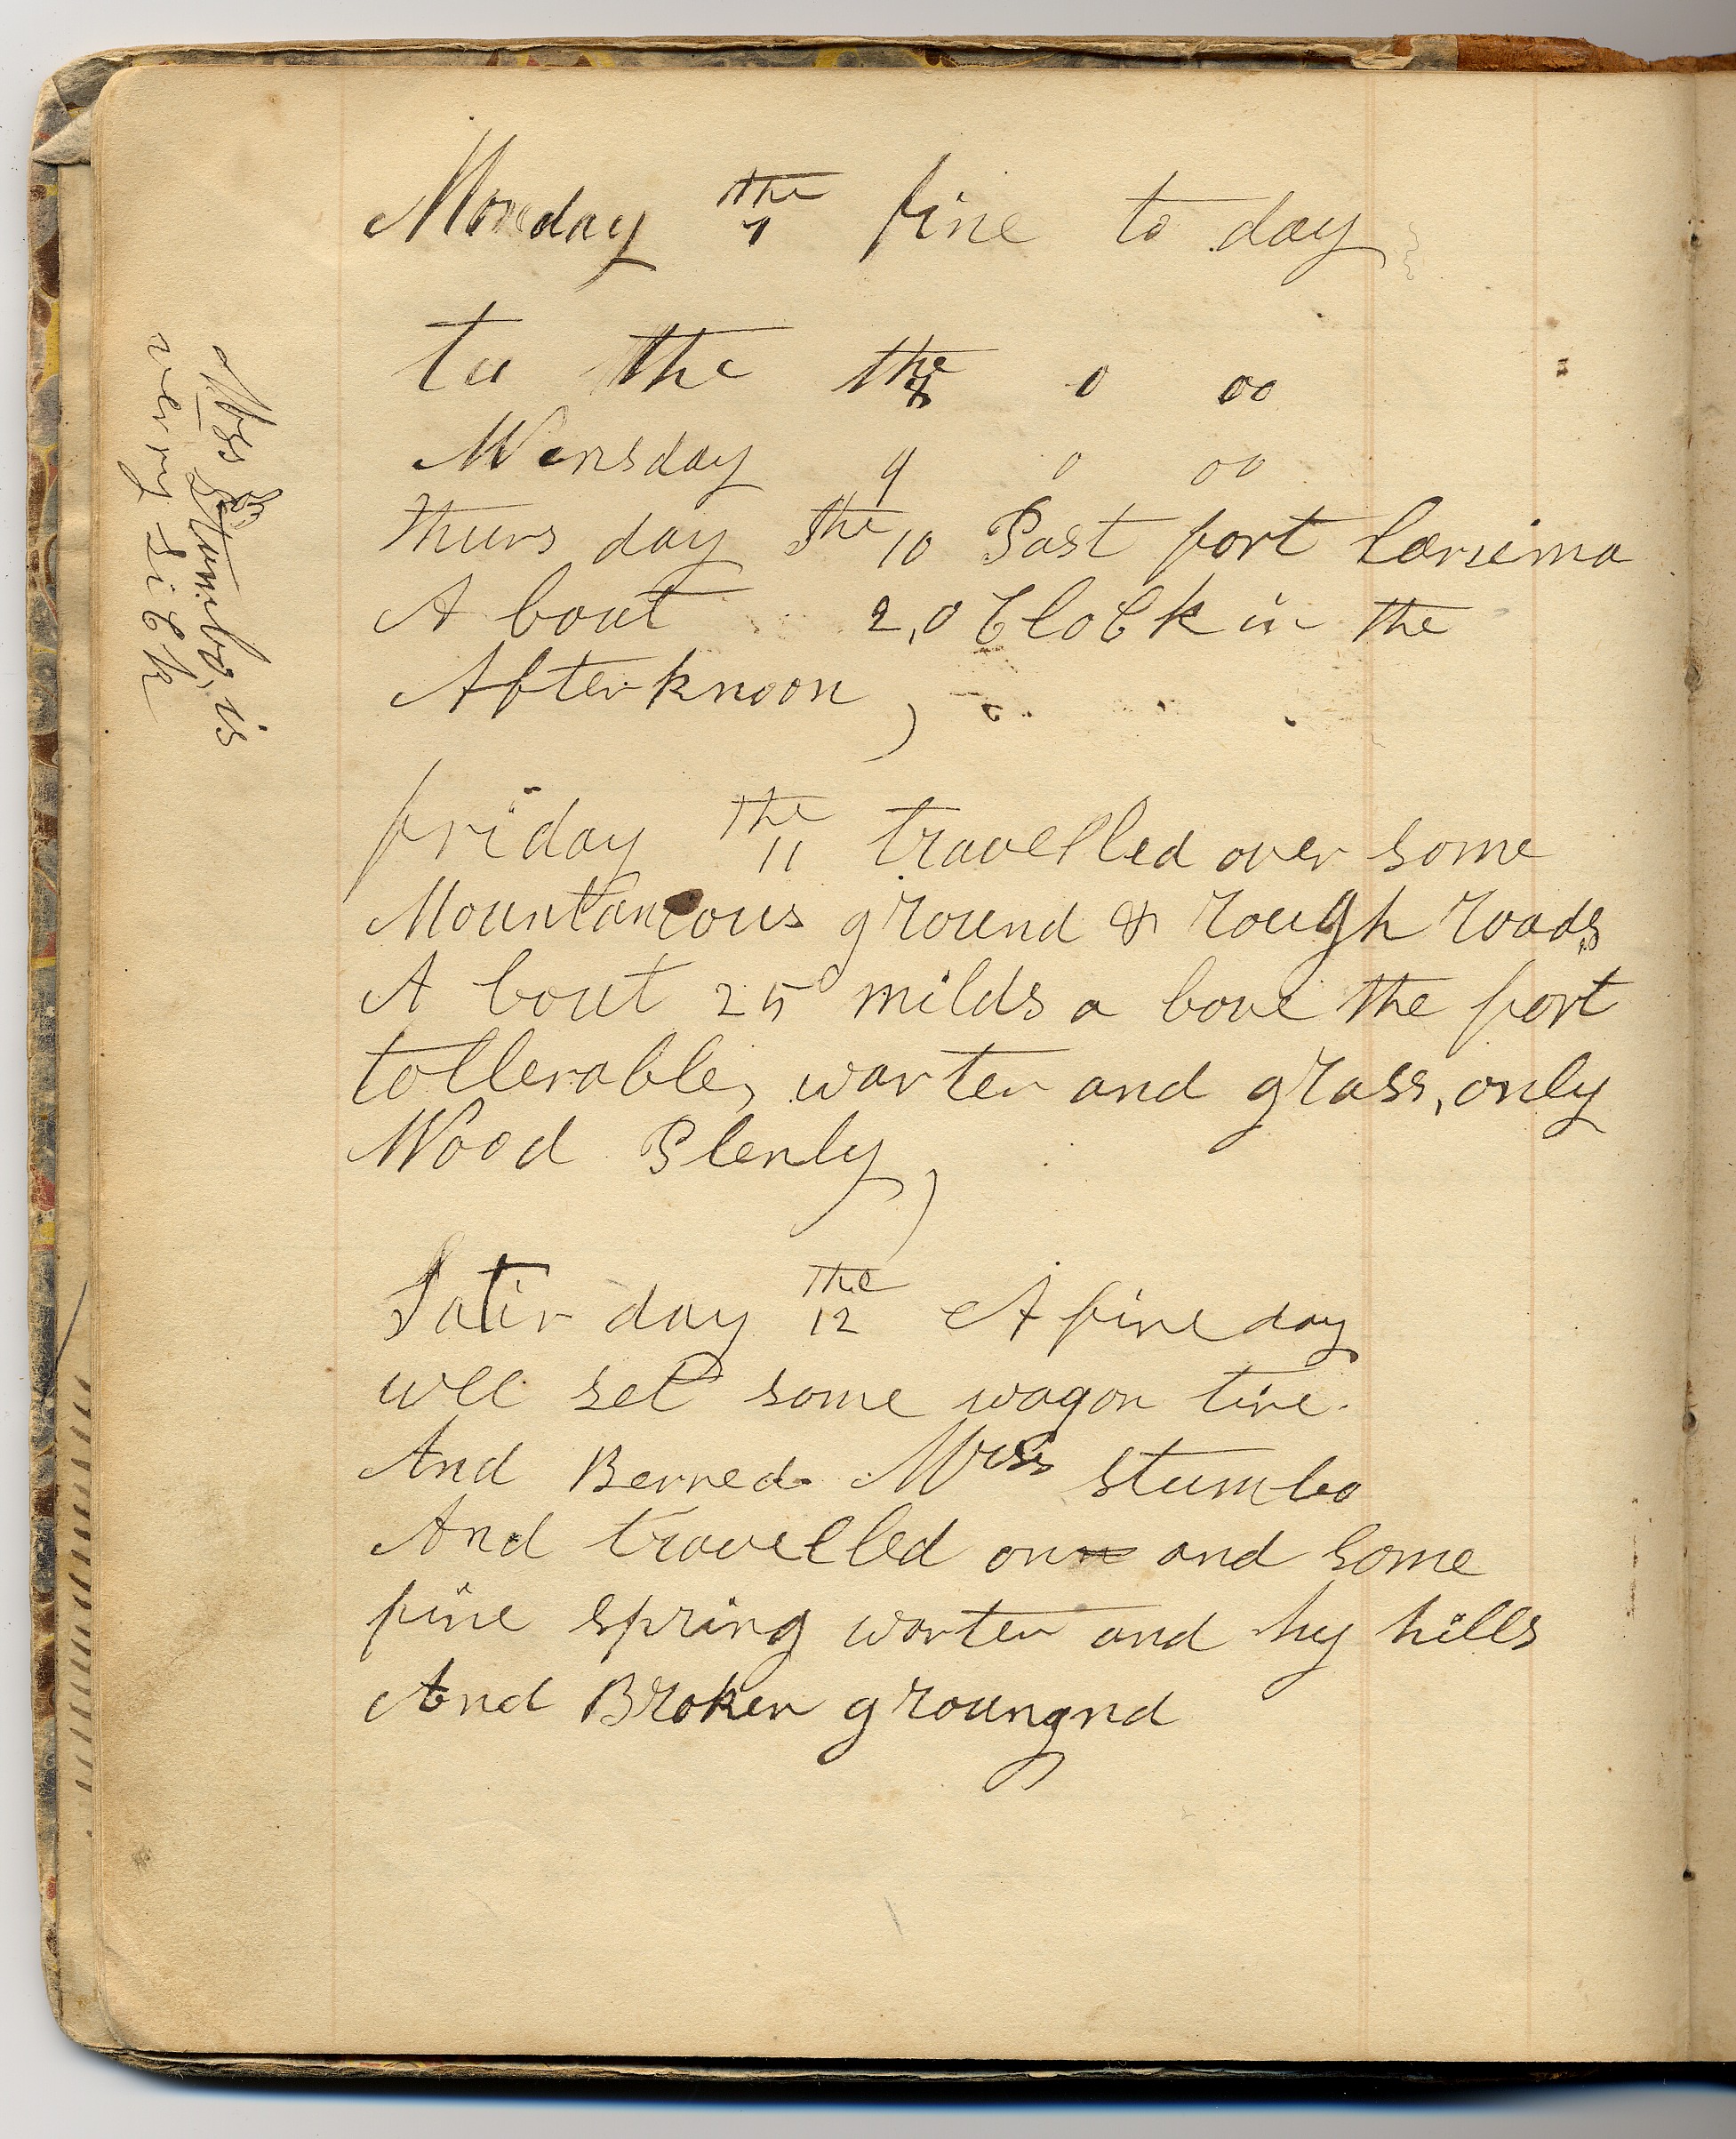 Monday the 7 fine to day
tu the the 8 0 00
Wensday 9 0 00
thurs day the 10 Past fort Lariema
A bout 2,0 CloCk in the
Afterknoon,
friday the 11 travelled over some
Mountaneous ground & rough roads
A bout 25 milds a bove the fort
tollerable, warter and grass, only
Wood Plenly,
Satir day the 12 A fine day
wee set some wagon tire.
And Berred Mrss Stumbo
And travelled onn and some
fine spring warter and hy hills
And Broken groungnd
Mrss Stumbo, is
verry siCk